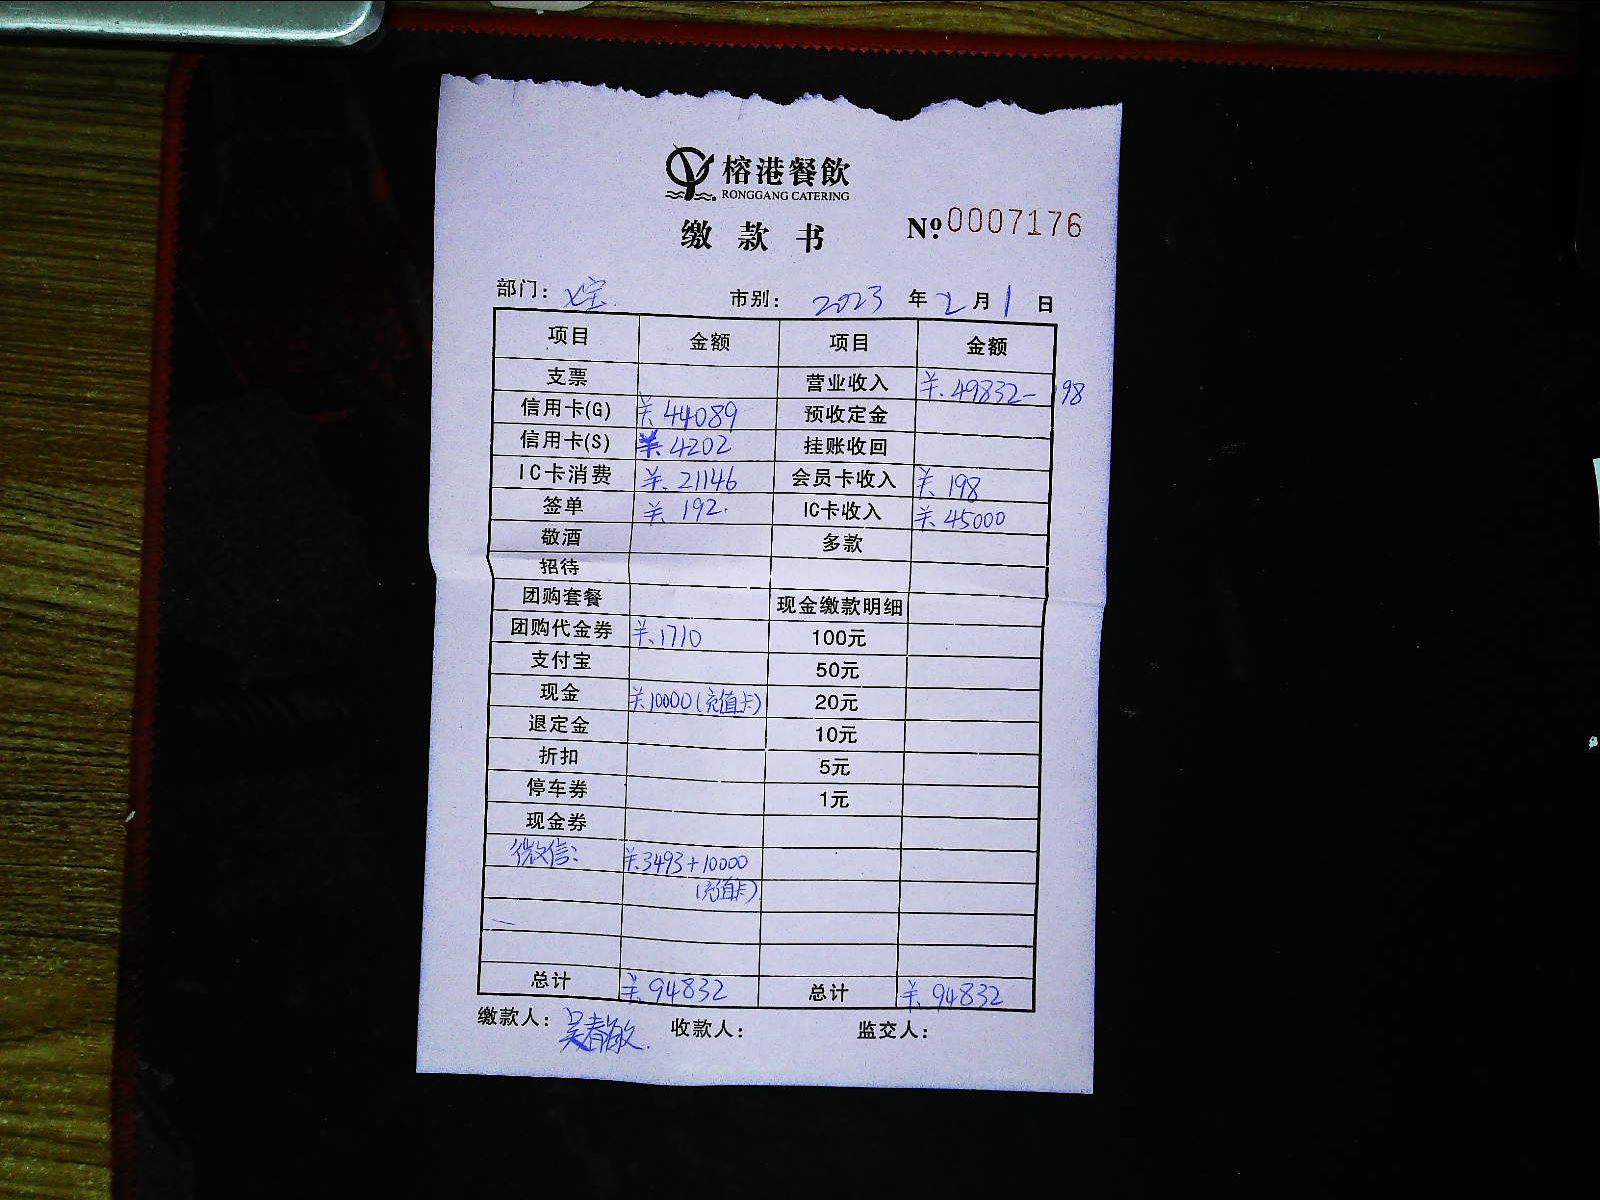 榕港餐飲
RONGGANG CATERING
缴款书 № 0007176
部门： 市别： 2023 年 2 月 1 日
项目 金额 项目 金额
支票 营业收入 ¥.49832-198
信用卡(G) ¥ 44089 预收定金
信用卡(S) ¥.4202 挂账收回
IC卡消费 ¥.21146 会员卡收入 ¥.198
签单 ¥. 192. IC卡收入 ¥.45000
敬酒 多款
招待
团购套餐 现金缴款明细
团购代金券 ¥.1710 100元
支付宝 50元
现金 ¥.10000(充值卡) 20元
退定金 10元
折扣 5元
停车券 1元
现金券
微信： ¥.3493+10000
(充值卡)
总计 ¥.94832 总计 ¥.94832
缴款人： 吴春敏. 收款人： 监交人：